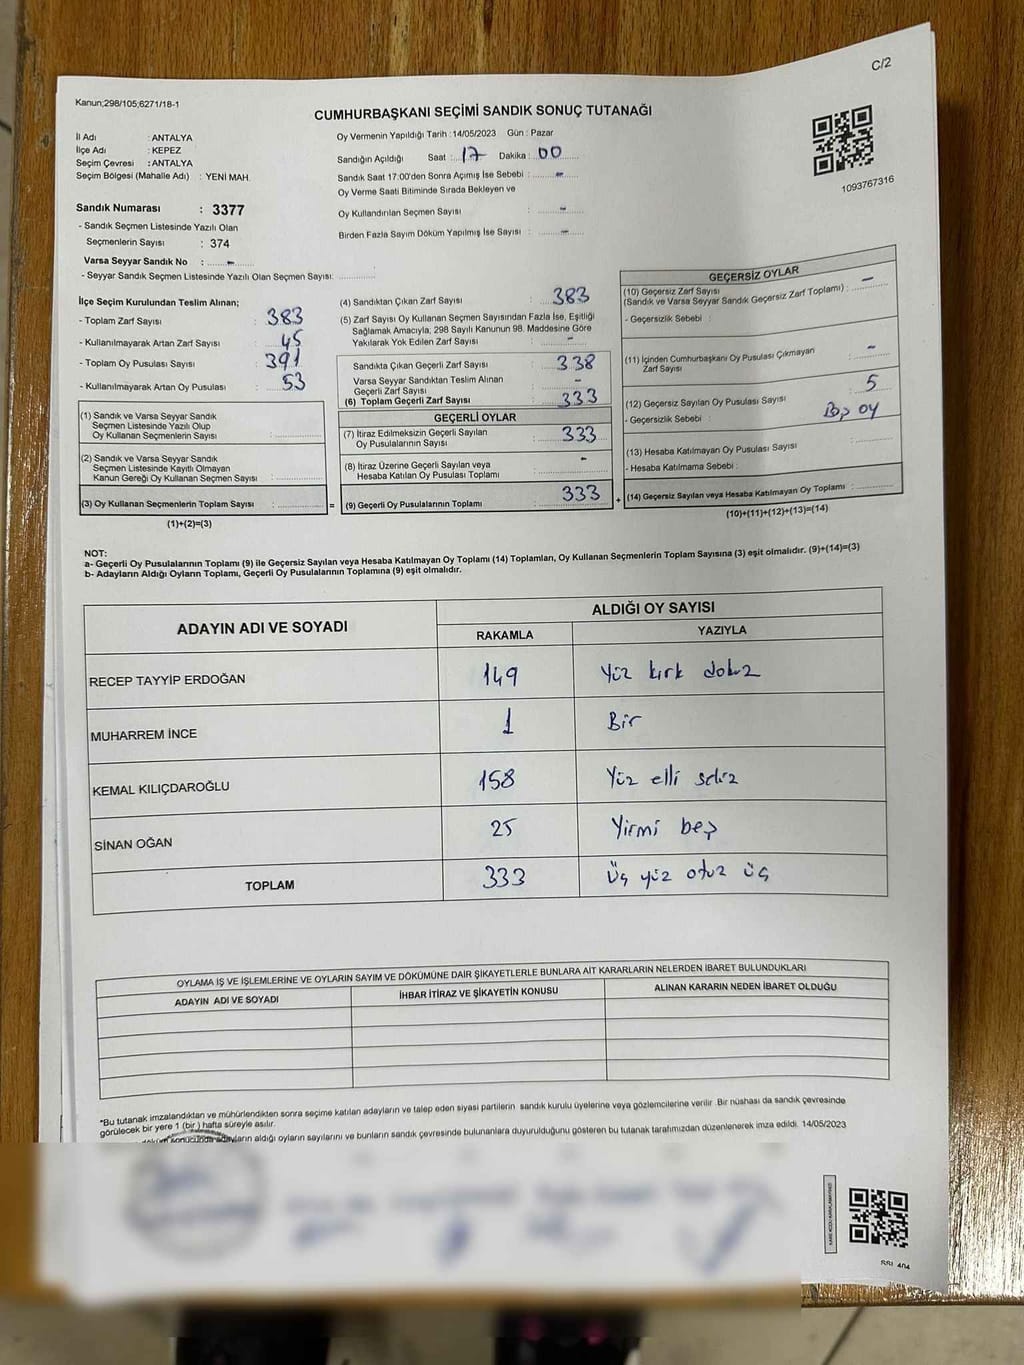 C/2
Kanun;298/105;6271/18-1
CUMHURBAŞKANI SEÇİMİ SANDIK SONUÇ TUTANAĞI
İl Adı : ANTALYA
İlçe Adı : KEPEZ
Seçim Çevresi : ANTALYA
Seçim Bölgesi (Mahalle Adı) : YENİ MAH.
Sandık Numarası : 3377
- Sandık Seçmen Listesinde Yazılı Olan
Seçmenlerin Sayısı : 374
Varsa Seyyar Sandık No : -
- Seyyar Sandık Seçmen Listesinde Yazılı Olan Seçmen Sayısı:
Oy Vermenin Yapıldığı Tarih : 14/05/2023 Gün : Pazar
Sandığın Açıldığı Saat : 17 Dakika : 00
Sandık Saat 17:00'den Sonra Açımış İse Sebebi : -
Oy Verme Saati Bitiminde Sırada Bekleyen ve
Oy Kullandırılan Seçmen Sayısı : -
Birden Fazla Sayım Döküm Yapılmış İse Sayısı : -
1093767316
İlçe Seçim Kurulundan Teslim Alınan;
- Toplam Zarf Sayısı : 383
- Kullanılmayarak Artan Zarf Sayısı : 45
- Toplam Oy Pusulası Sayısı : 391
- Kullanılmayarak Artan Oy Pusulası : 53
(1) Sandık ve Varsa Seyyar Sandık
Seçmen Listesinde Yazılı Olup
Oy Kullanan Seçmenlerin Sayısı :
(2) Sandık ve Varsa Seyyar Sandık
Seçmen Listesinde Kayıtlı Olmayan
Kanun Gereği Oy Kullanan Seçmen Sayısı :
(3) Oy Kullanan Seçmenlerin Toplam Sayısı :
(1)+(2)=(3)
(4) Sandıktan Çıkan Zarf Sayısı : 383
(5) Zarf Sayısı Oy Kullanan Seçmen Sayısından Fazla İse, Eşitliği
Sağlamak Amacıyla; 298 Sayılı Kanunun 98. Maddesine Göre
Yakılarak Yok Edilen Zarf Sayısı : -
Sandıkta Çıkan Geçerli Zarf Sayısı : 338
Varsa Seyyar Sandıktan Teslim Alınan
Geçerli Zarf Sayısı : -
(6) Toplam Geçerli Zarf Sayısı : 333
GEÇERLİ OYLAR
(7) İtiraz Edilmeksizin Geçerli Sayılan
Oy Pusulalarının Sayısı : 333
(8) İtiraz Üzerine Geçerli Sayılan veya
Hesaba Katılan Oy Pusulası Toplamı : -
= (9) Geçerli Oy Pusulalarının Toplamı : 333
GEÇERSİZ OYLAR
(10) Geçersiz Zarf Sayısı
(Sandık ve Varsa Seyyar Sandık Geçersiz Zarf Toplamı) : -
- Geçersizlik Sebebi :
(11) İçinden Cumhurbaşkanı Oy Pusulası Çıkmayan
Zarf Sayısı : -
(12) Geçersiz Sayılan Oy Pusulası Sayısı : 5
- Geçersizlik Sebebi : Boş oy
(13) Hesaba Katılmayan Oy Pusulası Sayısı :
- Hesaba Katılmama Sebebi :
+ (14) Geçersiz Sayılan veya Hesaba Katılmayan Oy Toplamı :
(10)+(11)+(12)+(13)=(14)
NOT:
a- Geçerli Oy Pusulalarının Toplamı (9) ile Geçersiz Sayılan veya Hesaba Katılmayan Oy Toplamı (14) Toplamları, Oy Kullanan Seçmenlerin Toplam Sayısına (3) eşit olmalıdır. (9)+(14)=(3)
b- Adayların Aldığı Oyların Toplamı, Geçerli Oy Pusulalarının Toplamına (9) eşit olmalıdır.
ADAYIN ADI VE SOYADI
ALDIĞI OY SAYISI
RAKAMLA YAZIYLA
RECEP TAYYİP ERDOĞAN 149 Yüz kırk dokuz
MUHARREM İNCE 1 Bir
KEMAL KILIÇDAROĞLU 158 Yüz elli sekiz
SİNAN OĞAN 25 Yirmi beş
TOPLAM 333 Üç yüz otuz üç
OYLAMA İŞ VE İŞLEMLERİNE VE OYLARIN SAYIM VE DÖKÜMÜNE DAİR ŞİKAYETLERLE BUNLARA AİT KARARLARIN NELERDEN İBARET BULUNDUKLARI
ADAYIN ADI VE SOYADI İHBAR İTİRAZ VE ŞİKAYETİN KONUSU ALINAN KARARIN NEDEN İBARET OLDUĞU
*Bu tutanak imzalandıktan ve mühürlendikten sonra seçime katılan adayların ve talep eden siyasi partilerin sandık kurulu üyelerine veya gözlemcilerine verilir .Bir nüshası da sandık çevresinde
görülecek bir yere 1 (bir ) hafta süreyle asılır.
sonucunda adayların aldığı oyların sayılarını ve bunların sandık çevresinde bulunanlara duyurulduğunu gösteren bu tutanak tarafımızdan düzenlenerek imza edildi. 14/05/2023